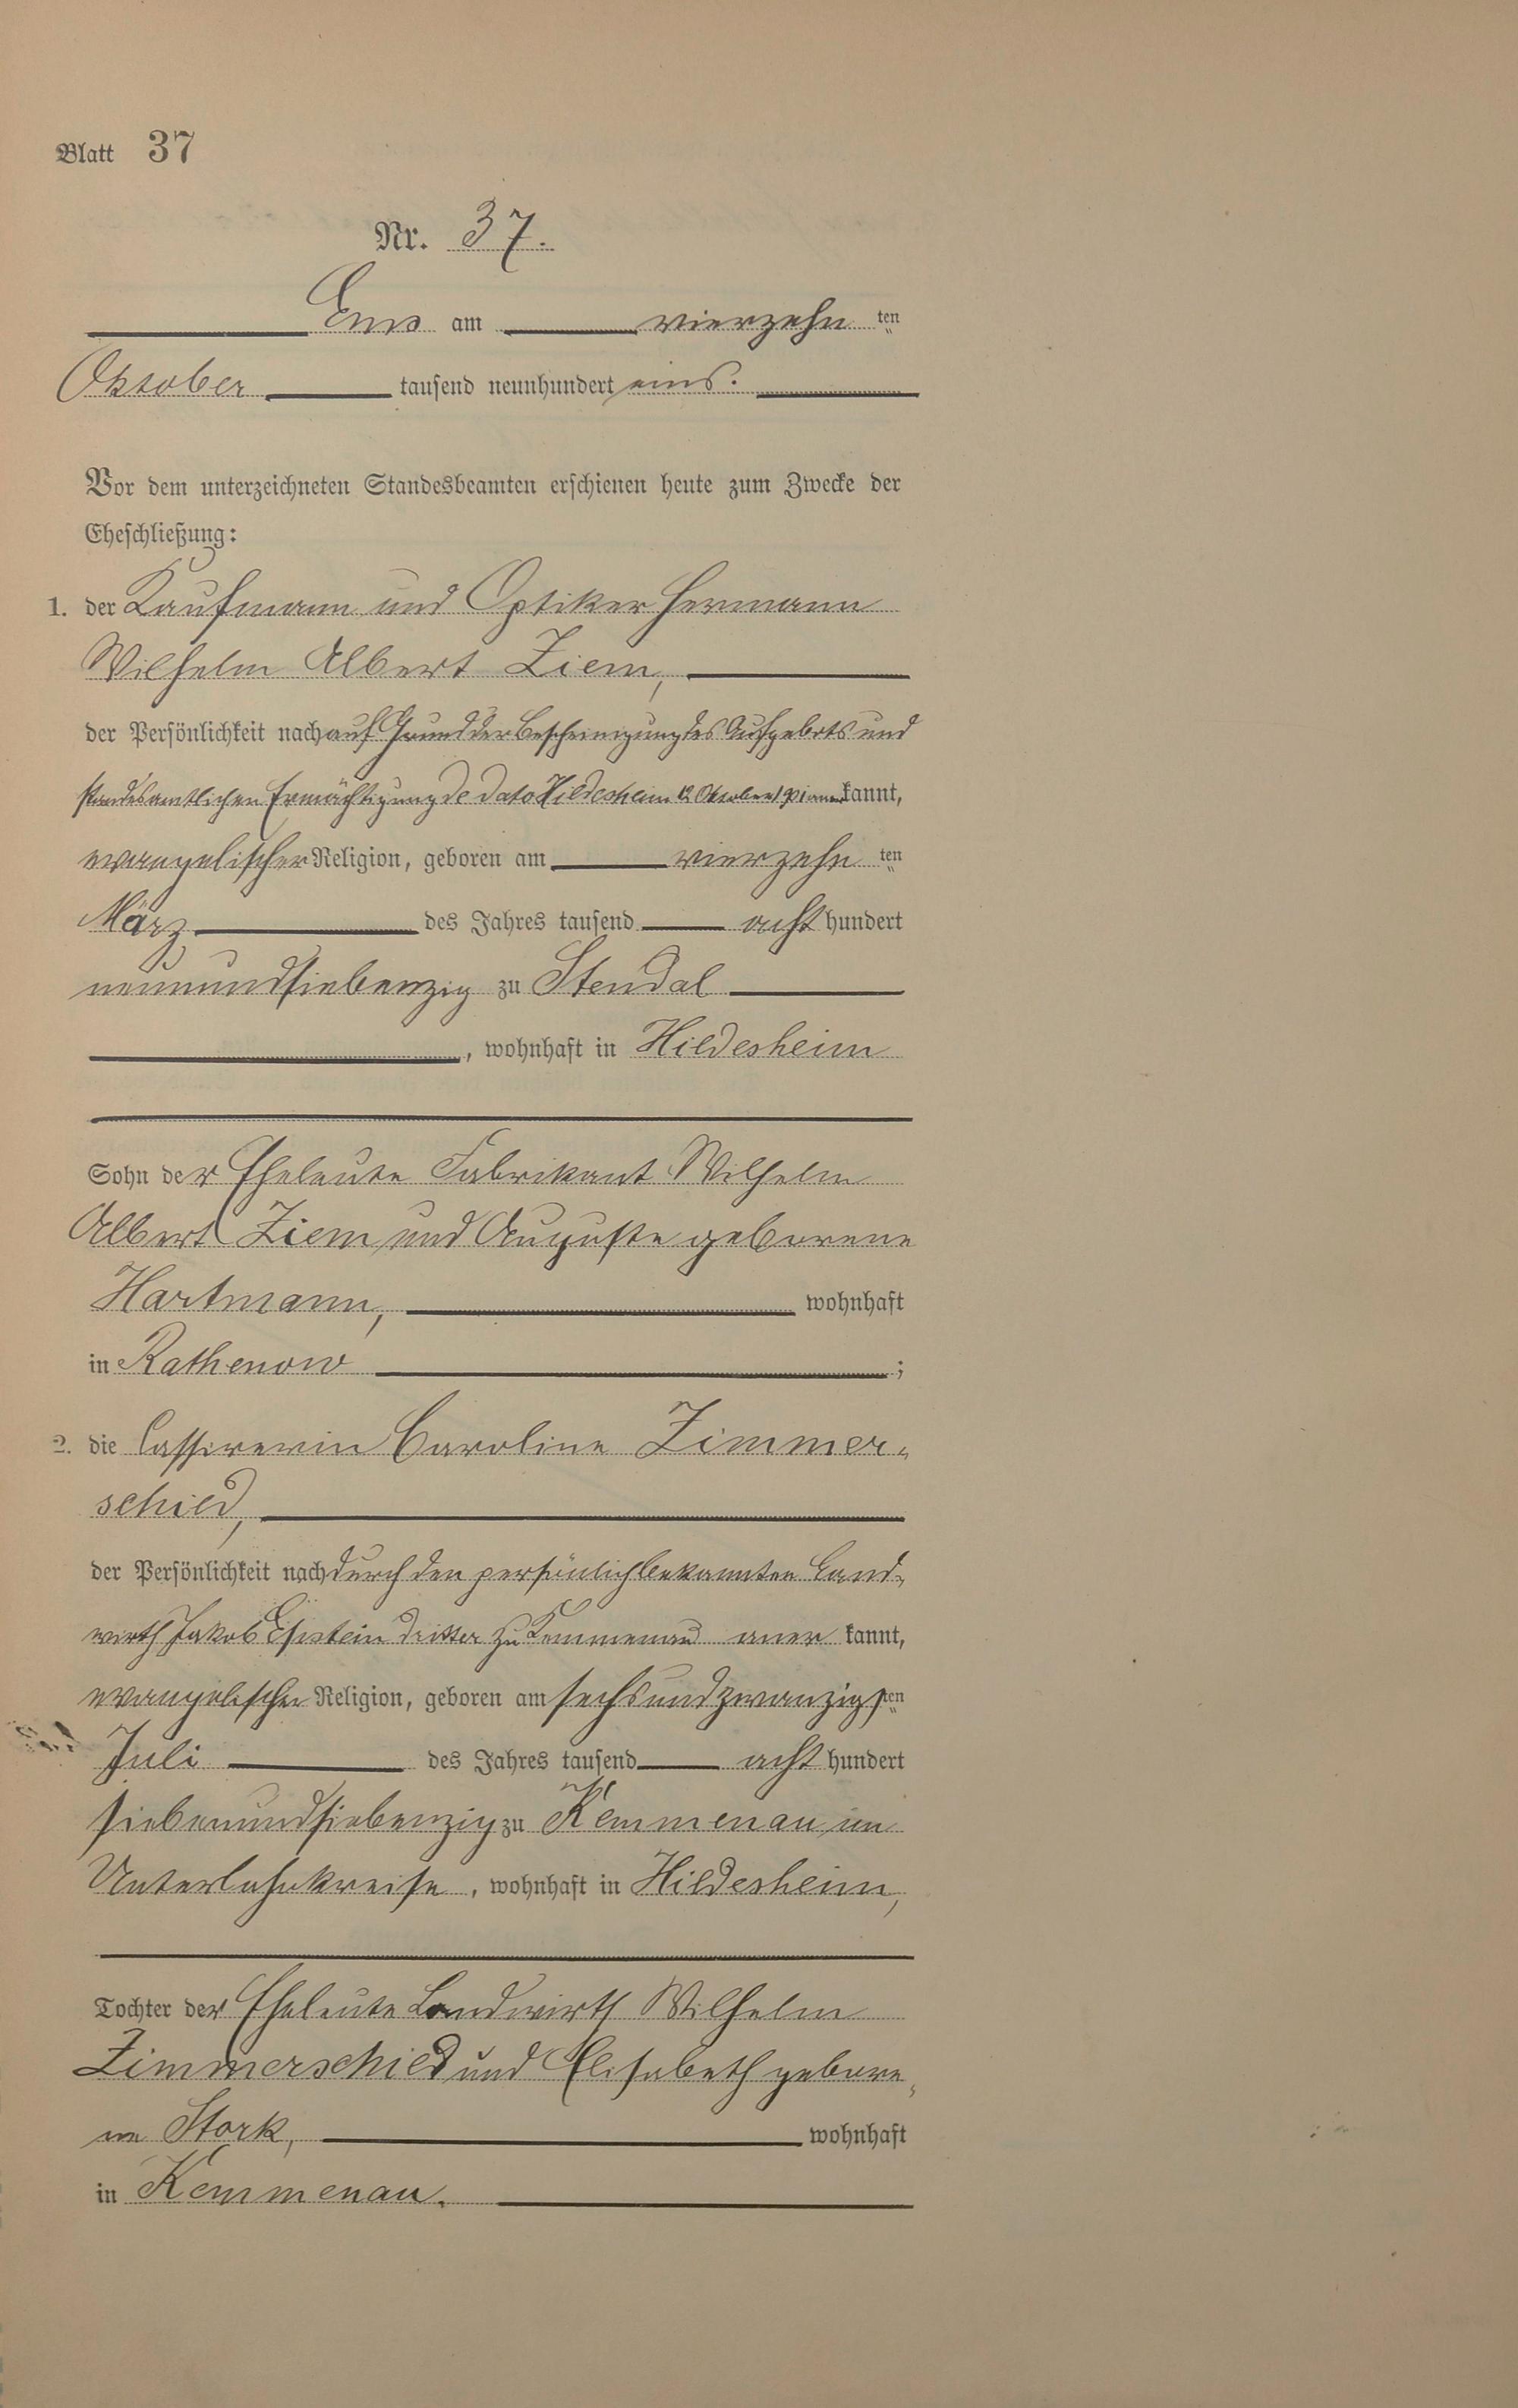 Blatt 37
Nr. 37.
Ems am vierzehnten
Oktober tausend neunhundert eins.
Vor dem unterzeichneten Standesbeamten erschienen heute zum Zwecke der
Eheschließung:
1. der Kaufmann und Optiker Hermann
Wilhelm Albert Ziem,
der Persönlichkeit nach auf Grund der Bescheinigung des Aufgebots und
standesamtlichen Ermächtigung de dato Hildesheim 12 Oktober kannt,
evangelischer Religion, geboren am vierzehnten
März des Jahres tausend acht hundert
neunundsiebenzig zu Stendal
, wohnhaft in Hildesheim
Sohn der Eheleute Fabrikant Wilhelm
Albert Ziem und Auguste geborene
Hartmann, wohnhaft
in Rathenow ;
2. die Cassirerin Caroline Zimmer-
schied,
der Persönlichkeit nach durch den persönlich bekannten Land-
wirth Jakob dritter zu Kemmenau aner kannt,
evangelischer Religion, geboren am sechsundzwanzigsten
Juli des Jahres tausend acht hundert
siebenundsiebenzig zu Kemmenau im
Unterlahnkreise, wohnhaft in Hildesheim,
Tochter der Eheleute Landwirth Wilhelm
Zimmerschied und Elisabeth gebore-
ne Stork, wohnhaft
in Kemmenau.